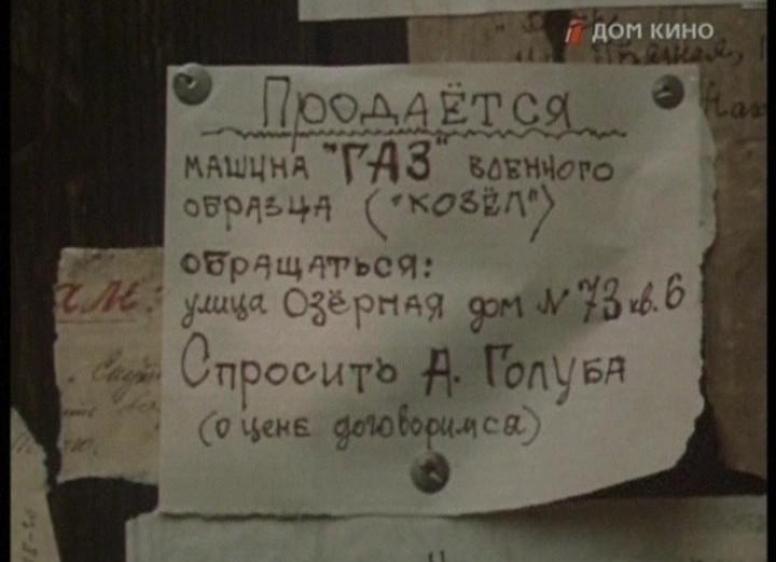 ДОМ КИНО
ПРОДАЁТСЯ
МАШИНА "ГАЗ" ВОЕННОГО
ОБРАЗЦА ("КОЗЁЛ")
ОБРАЩАТЬСЯ:
улица ОЗЁРНАЯ дом N 73 кв. 6
Спросить А. ГОЛУБА
(о цене договоримся)